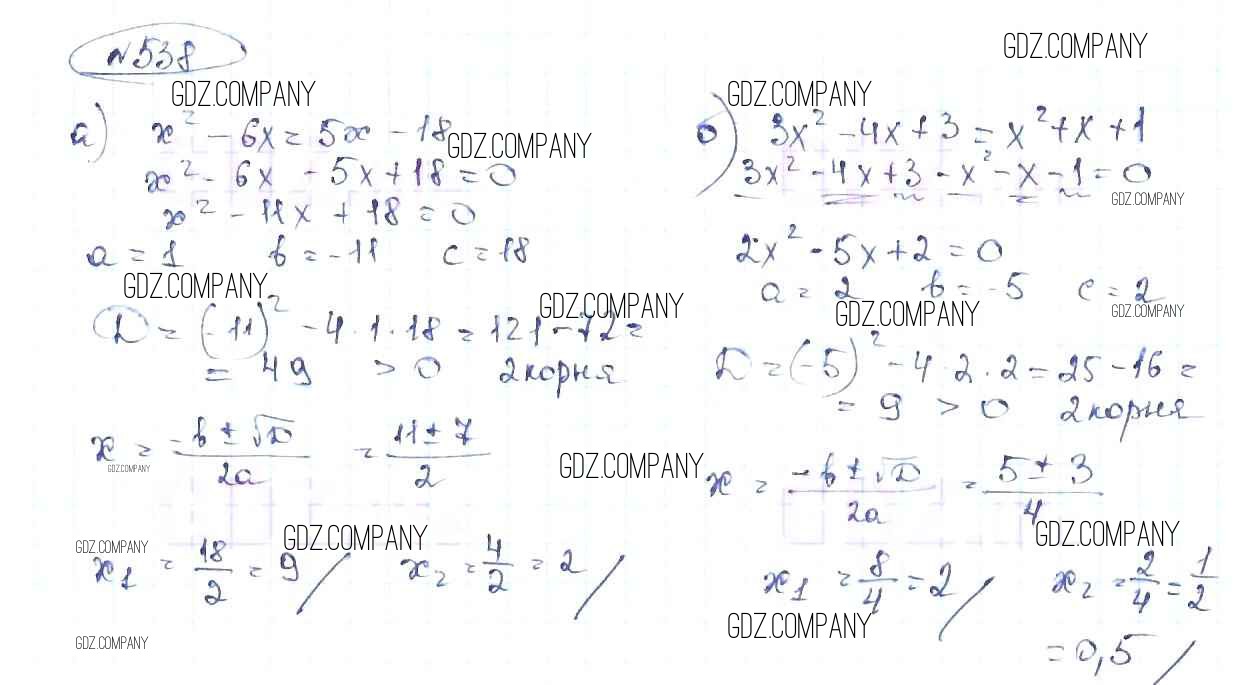 №538
GDZ.COMPANY
GDZ.COMPANY
а) x² - 6x = 5x - 18
GDZ.COMPANY
x² - 6x - 5x + 18 = 0
x² - 11x + 18 = 0
a = 1 b = -11 c = 18
GDZ.COMPANY
GDZ.COMPANY
D = (-11)² - 4·1·18 = 121 - 72 =
= 49 > 0 2 корня
x = (-b ± √D)/2a = (11 ± 7)/2
GDZ.COMPANY
GDZ.COMPANY
GDZ.COMPANY
GDZ.COMPANY
x₁ = 18/2 = 9 / x₂ = 4/2 = 2 /
GDZ.COMPANY
GDZ.COMPANY
б) 3x² - 4x + 3 = x² + x + 1
3x² - 4x + 3 - x² - x - 1 = 0
GDZ.COMPANY
2x² - 5x + 2 = 0
a = 2 b = -5 c = 2
GDZ.COMPANY
GDZ.COMPANY
D = (-5)² - 4·2·2 = 25 - 16 =
= 9 > 0 2 корня
x = (-b ± √D)/2a = (5 ± 3)/4
GDZ.COMPANY
x₁ = 8/4 = 2 / x₂ = 2/4 = 1/2
GDZ.COMPANY
= 0,5 /